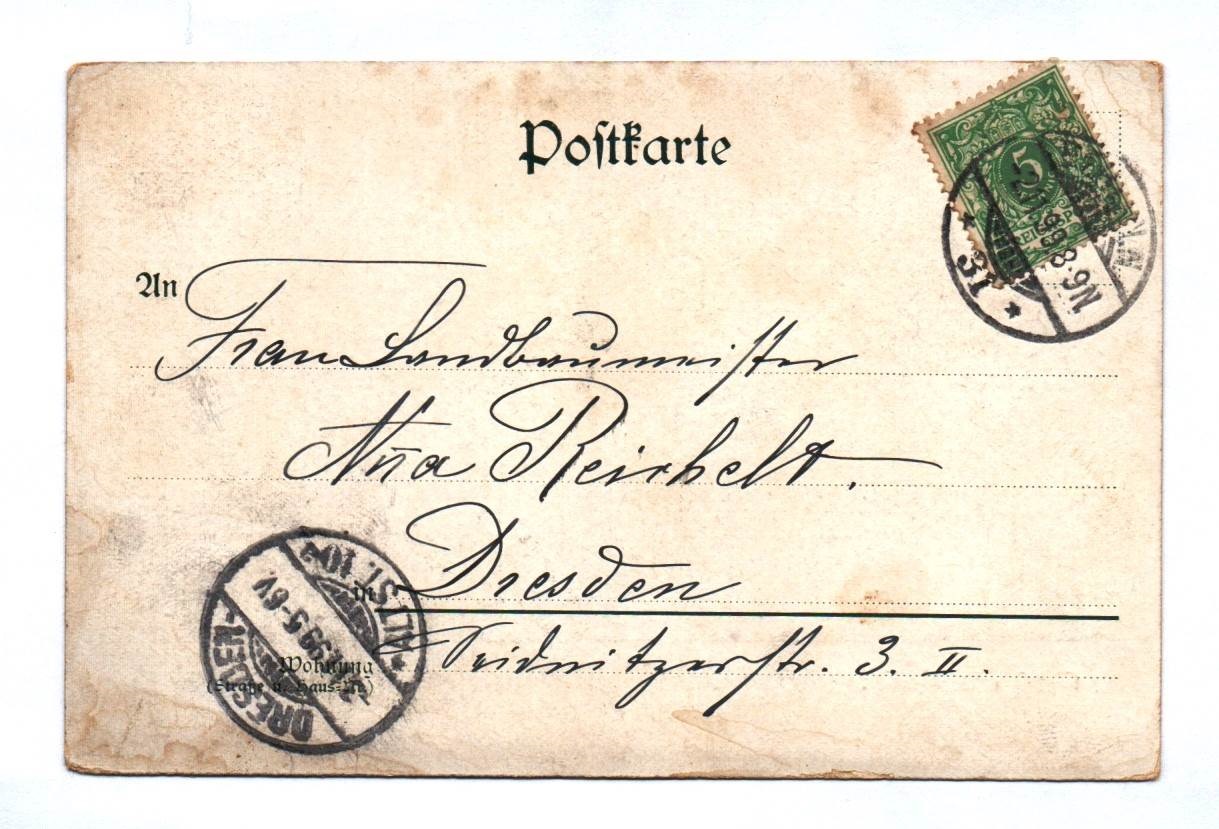 Postkarte
An
Frau Landbaumeister
Reichelt.
in Dresden
Wohnung
(Straße u. Haus-Nr.)
Seidnitzerstr. 3. II.
5
99 8-9N
DRESDEN-ALTST. 10
99 5-6V.